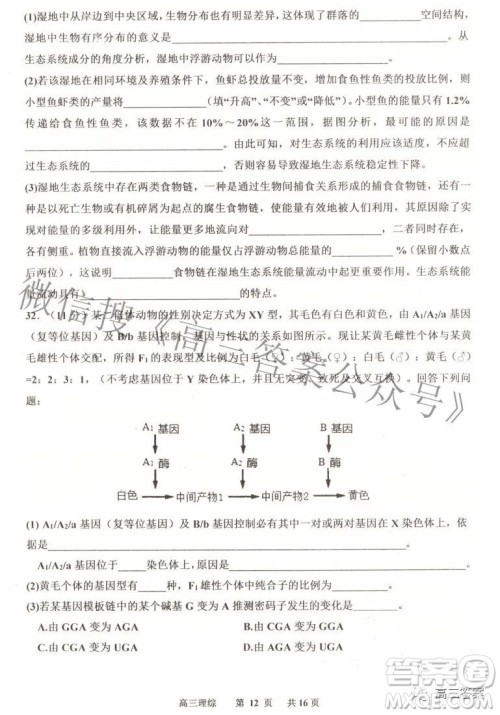 (1)湿地中从岸边到中央区域，生物分布也有明显差异，这体现了群落的____空间结构，
湿地中生物有序分布的意义是____。从
生态系统成分的角度分析，湿地中浮游动物可以属于____。
(2)若该湿地在相同环境及养殖条件下，鱼虾总投放量不变，提高食鱼性鱼类的投放比例，则
小型鱼虾类的产量将____(填“升高”、“不变”或“降低”)。小型鱼虾类的能量只有 1.2%
传递给食鱼性鱼类，不在 10%～20%这一范围，据图分析，可能的原因是
____。对生态系统的利用应该适度，不应
超____，否则容易导致湿地生态系统被破坏。
(3)湿地生态系统中存在两类食物链，通过生物间捕食关系形成的捕食食物链和
以死亡生物或有机碎屑为起点的腐生食物链，使能量更多地流向____，二者同时存在，
各有侧重。植物直接流入浮游动物的能量，仅占浮游动物获得总能量的____%(保留小数点
后两位)，这说明____食物链在湿地生态系统能量流动中起更重要作用。生态系统能
量流动具有____的特点。
32.（11 分）某二倍体动物的性别决定方式为 XY 型，其毛色有白色和黄色，由 A₁/A₂/a 基因
(复等位基因)及 B/b 基因控制，基因与性状的关系如图所示。现让某黄毛雌性个体与某黄毛
雄性个体交配，所得 F₁的表现型及比例为白毛（♀）：黄毛（♀）：白毛（♂）：黄毛（♂）
=2：2：3：1，(不考虑基因位于 Y 染色体上，并且无突变、致死及交叉互换)。回答下列问
题：
A₁ 基因 B 基因 A₂ 基因
A₁ 酶 B 酶 A₂ 酶
白色 中间产物1 中间产物2 黄色
(1) A₁/A₂/a 基因（复等位基因）及 B/b 基因控制必有其中一对或两对基因在 X 染色体上，依
据是____。
A₁/A₂/a 基因位于____染色体上，原因是____。
(2)黄毛个体的基因型有____种，F₁雄性个体中纯合子占____。
(3)若某基因模板链中的某个碱基 G 变为 A，则可能引起密码子发生的变化是____。
A.由 GGA 变为 AGA B.由 CGA 变为 UGA
C.由 CGA 变为 GGA D.由 UGA 变为 CGA
高三理综 第 12 页 共 16 页
微信搜《高三答案公众号》
答案圈
高三答案
MXQE.COM